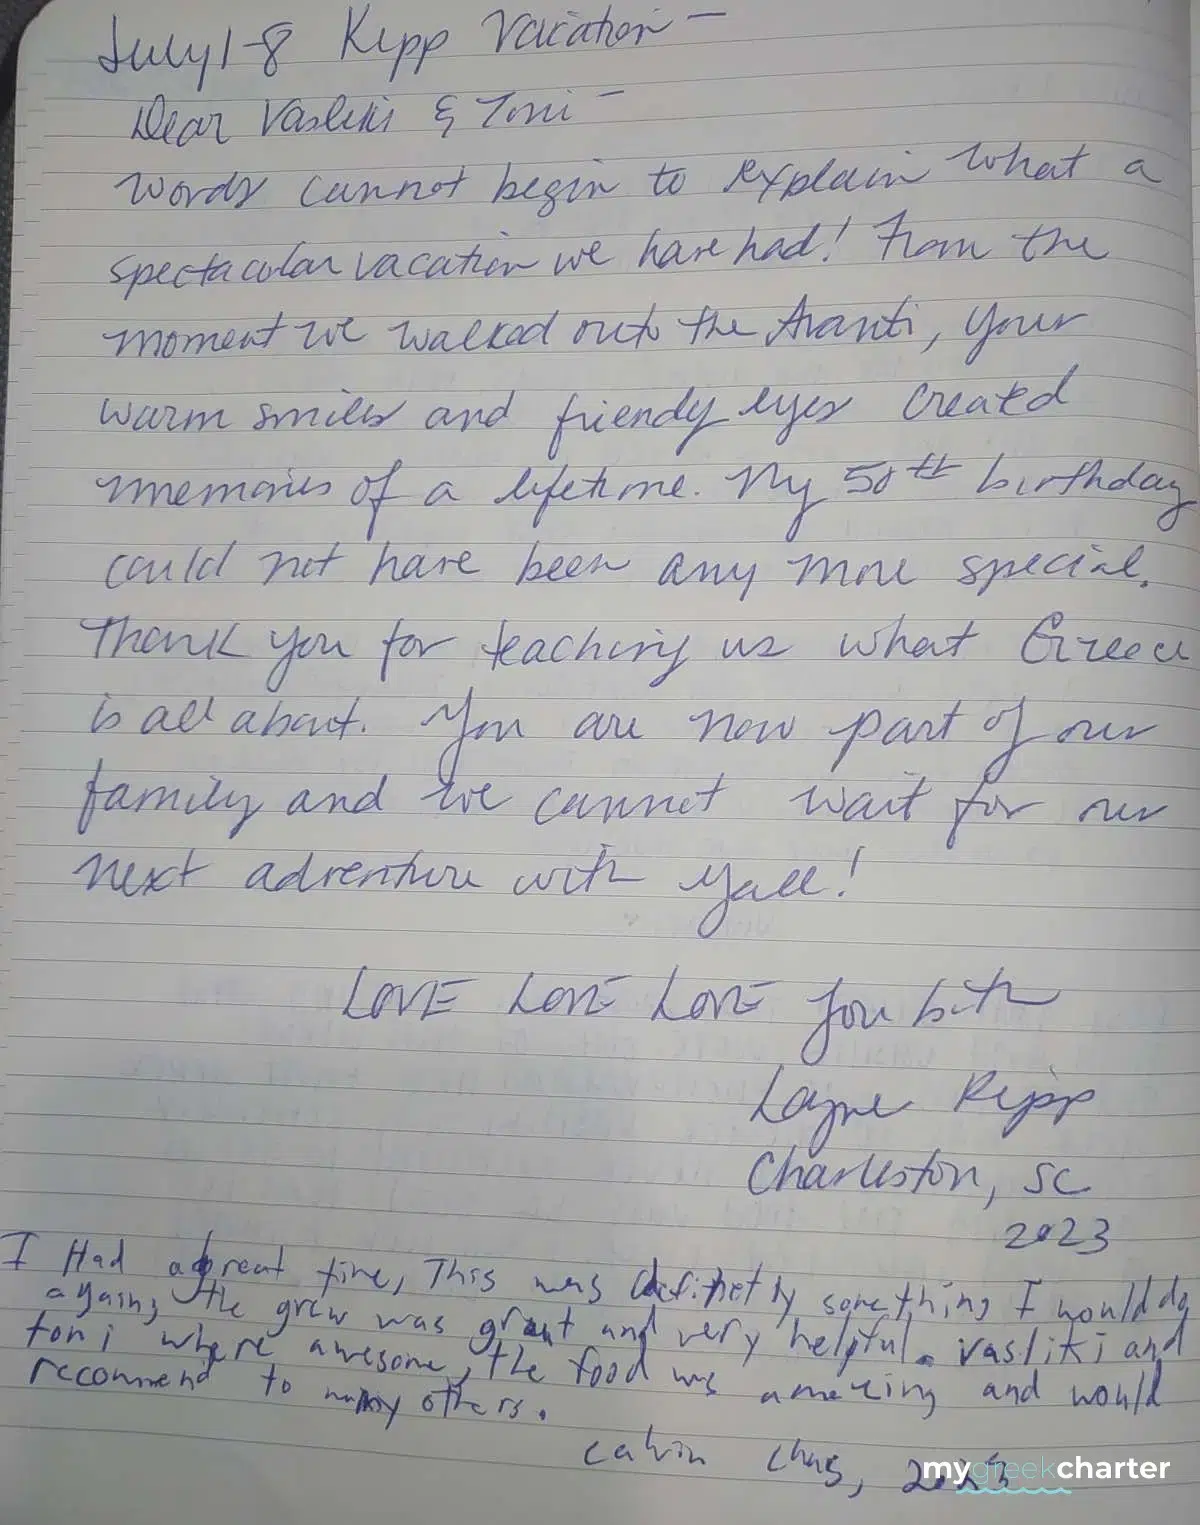 July 1-8 Kipp Vacation -
Dear Vasliki & Toni -
Words cannot begin to explain what a
spectacular vacation we have had! From the
moment we walked onto the Avanti, your
warm smiles and friendly eyes created
memories of a lifetime. My 50th birthday
could not have been any more special.
Thank you for teaching us what Greece
is all about. You are now part of our
family and we cannot wait for our
next adventure with yall!
LOVE LOVE LOVE you both
Layne Kipp
Charleston, SC
2023
I Had a great time, This was definetly something I would do
again, the grew was great and very helpful. Vasliki and
toni where awesome, the food was amazing and would
recommend to many others.
Calvin 2023
mygreekcharter